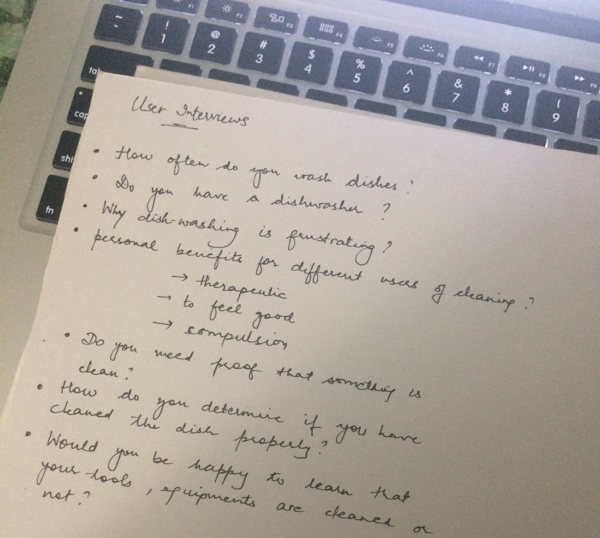 ~ ! @ # $ % ^ & * (
` 1 2 3 4 5 6 7 8 9
fn
User Interviews
• How often do you wash dishes?
• Do you have a dishwasher?
• Why dish-washing is frustrating?
• personal benefits for different users of cleaning?
→ therapeutic
→ to feel good
→ compulsion
• Do you need proof that something is
clean?
• How do you determine if you have
cleaned the dish properly?
• Would you be happy to learn that
your tools, equipments are cleaned or
not?